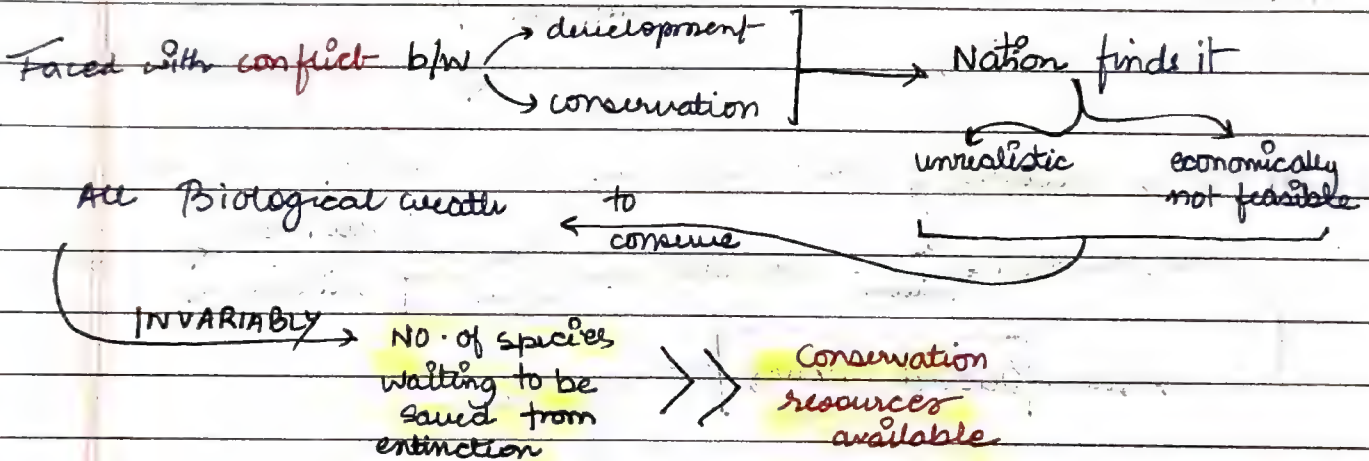 Faced with conflict b/w → development
→ conservation
→ Nation finds it
unrealistic economically
not feasible
All Biological wealth to
conserve
INVARIABLY → NO. of species
waiting to be
saved from
extinction
>> Conservation
resources
available